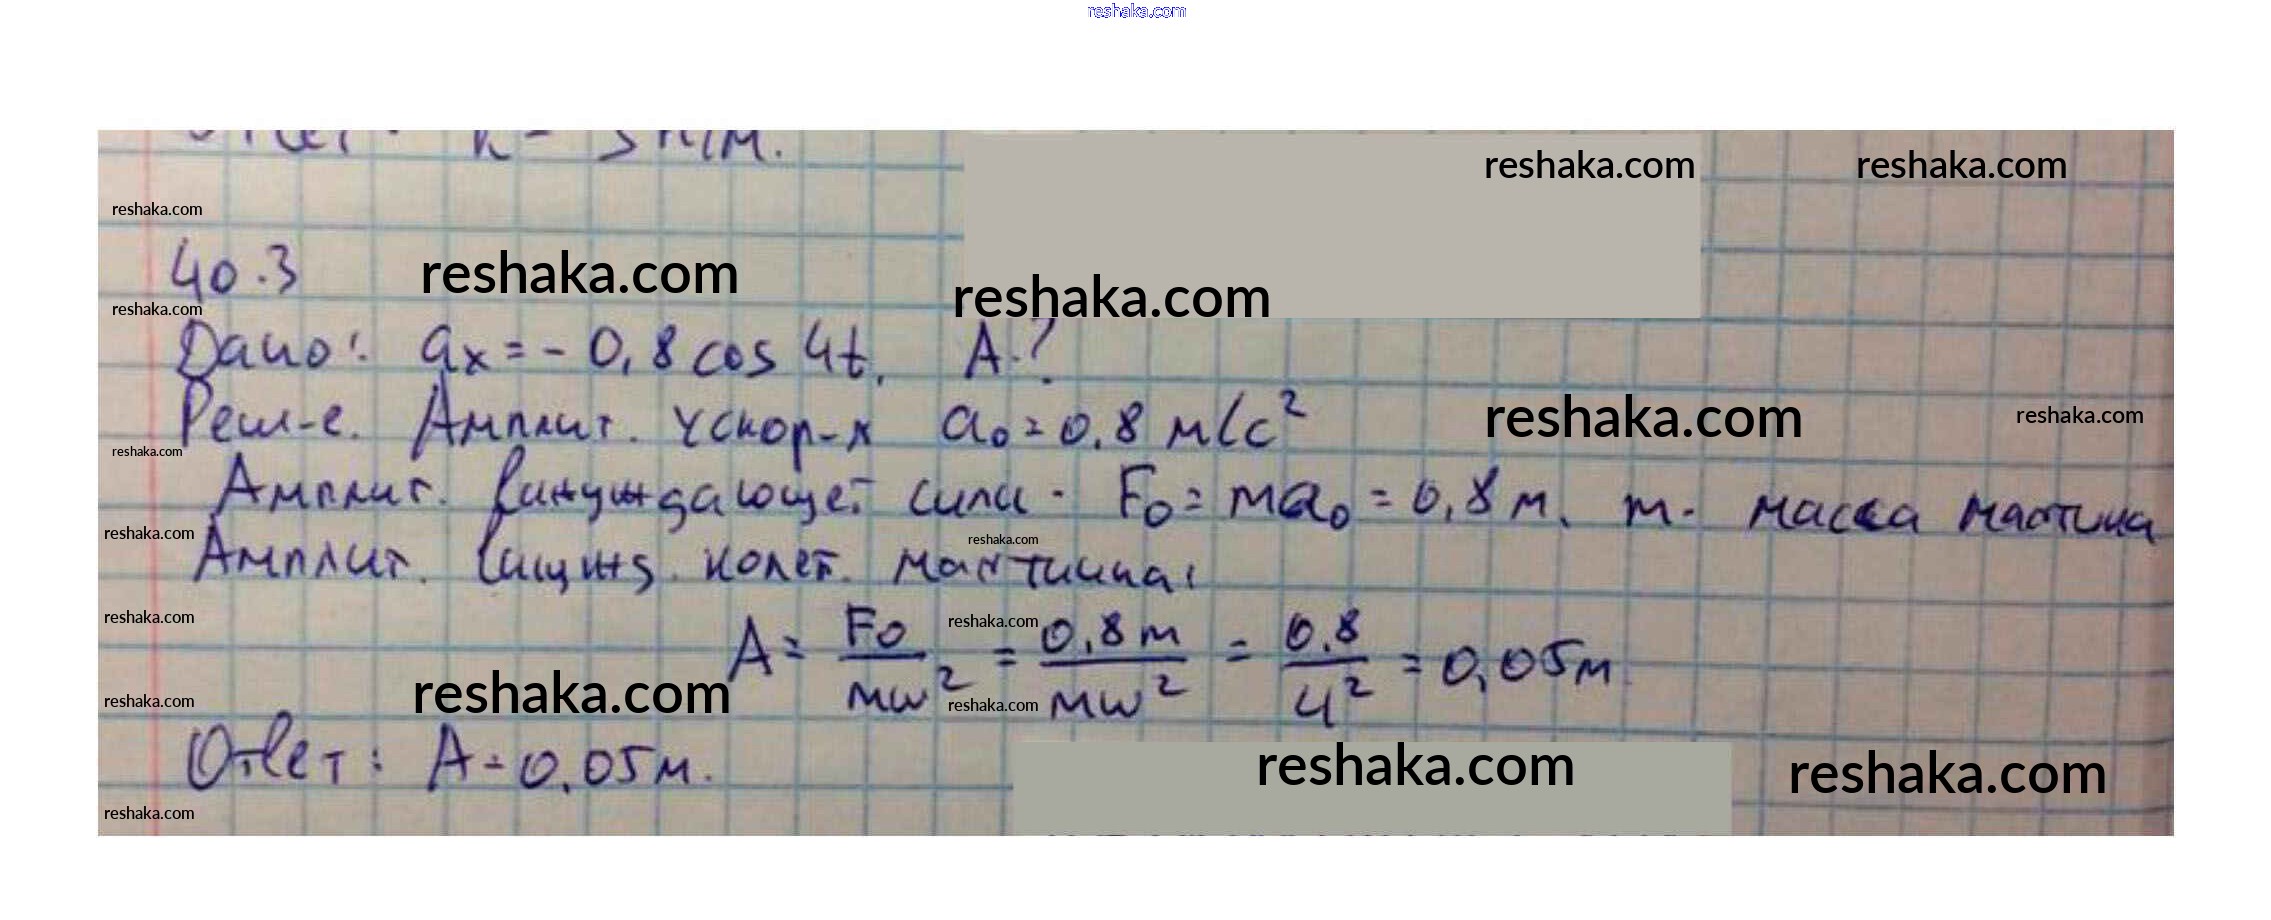 reshaka.com
reshaka.com reshaka.com
reshaka.com
40.3 reshaka.com reshaka.com
reshaka.com
Дано: aₓ = - 0,8 cos 4t, A-?
Реш-е. Амплит. ускор-я a₀ = 0,8 м/с² reshaka.com reshaka.com
reshaka.com
Амплит. вынуждающей силы - F₀ = ma₀ = 0,8 m, m - масса маятника
reshaka.com reshaka.com
Амплит. вынужд. колеб. маятника:
reshaka.com reshaka.com
A = F₀/mω² = 0,8m/mω² = 0,8/4² = 0,05м
reshaka.com reshaka.com reshaka.com
Ответ: A = 0,05м. reshaka.com reshaka.com
reshaka.com